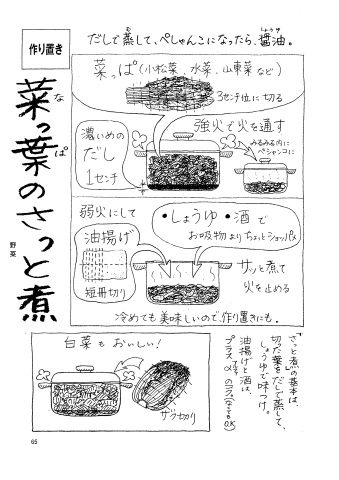 作り置き
菜っ葉のさっと煮
な
ぱ
野菜
だしで蒸して、ぺしゃんこになったら、醤油。
む
しょうゆ
菜っぱ(小松菜、水菜、山東菜など)
3センチ位に切る
濃いめの
だし
1センチ
強火で火を通す
みるみる内に
ペシャンコに
弱火にして
油揚げ
短冊切り
・しょうゆ・酒で
お吸物よりちょっとショッパメ
サッと煮て
火を止める
冷めても美味しいので、作り置きにも。
白菜もおいしい!
ザク切り
"さっと煮"の基本は、
切った葉をだしで蒸して、
しょうゆで味つけ。
油揚げと酒は、
プラスαのコラ(なくてもOK)
65